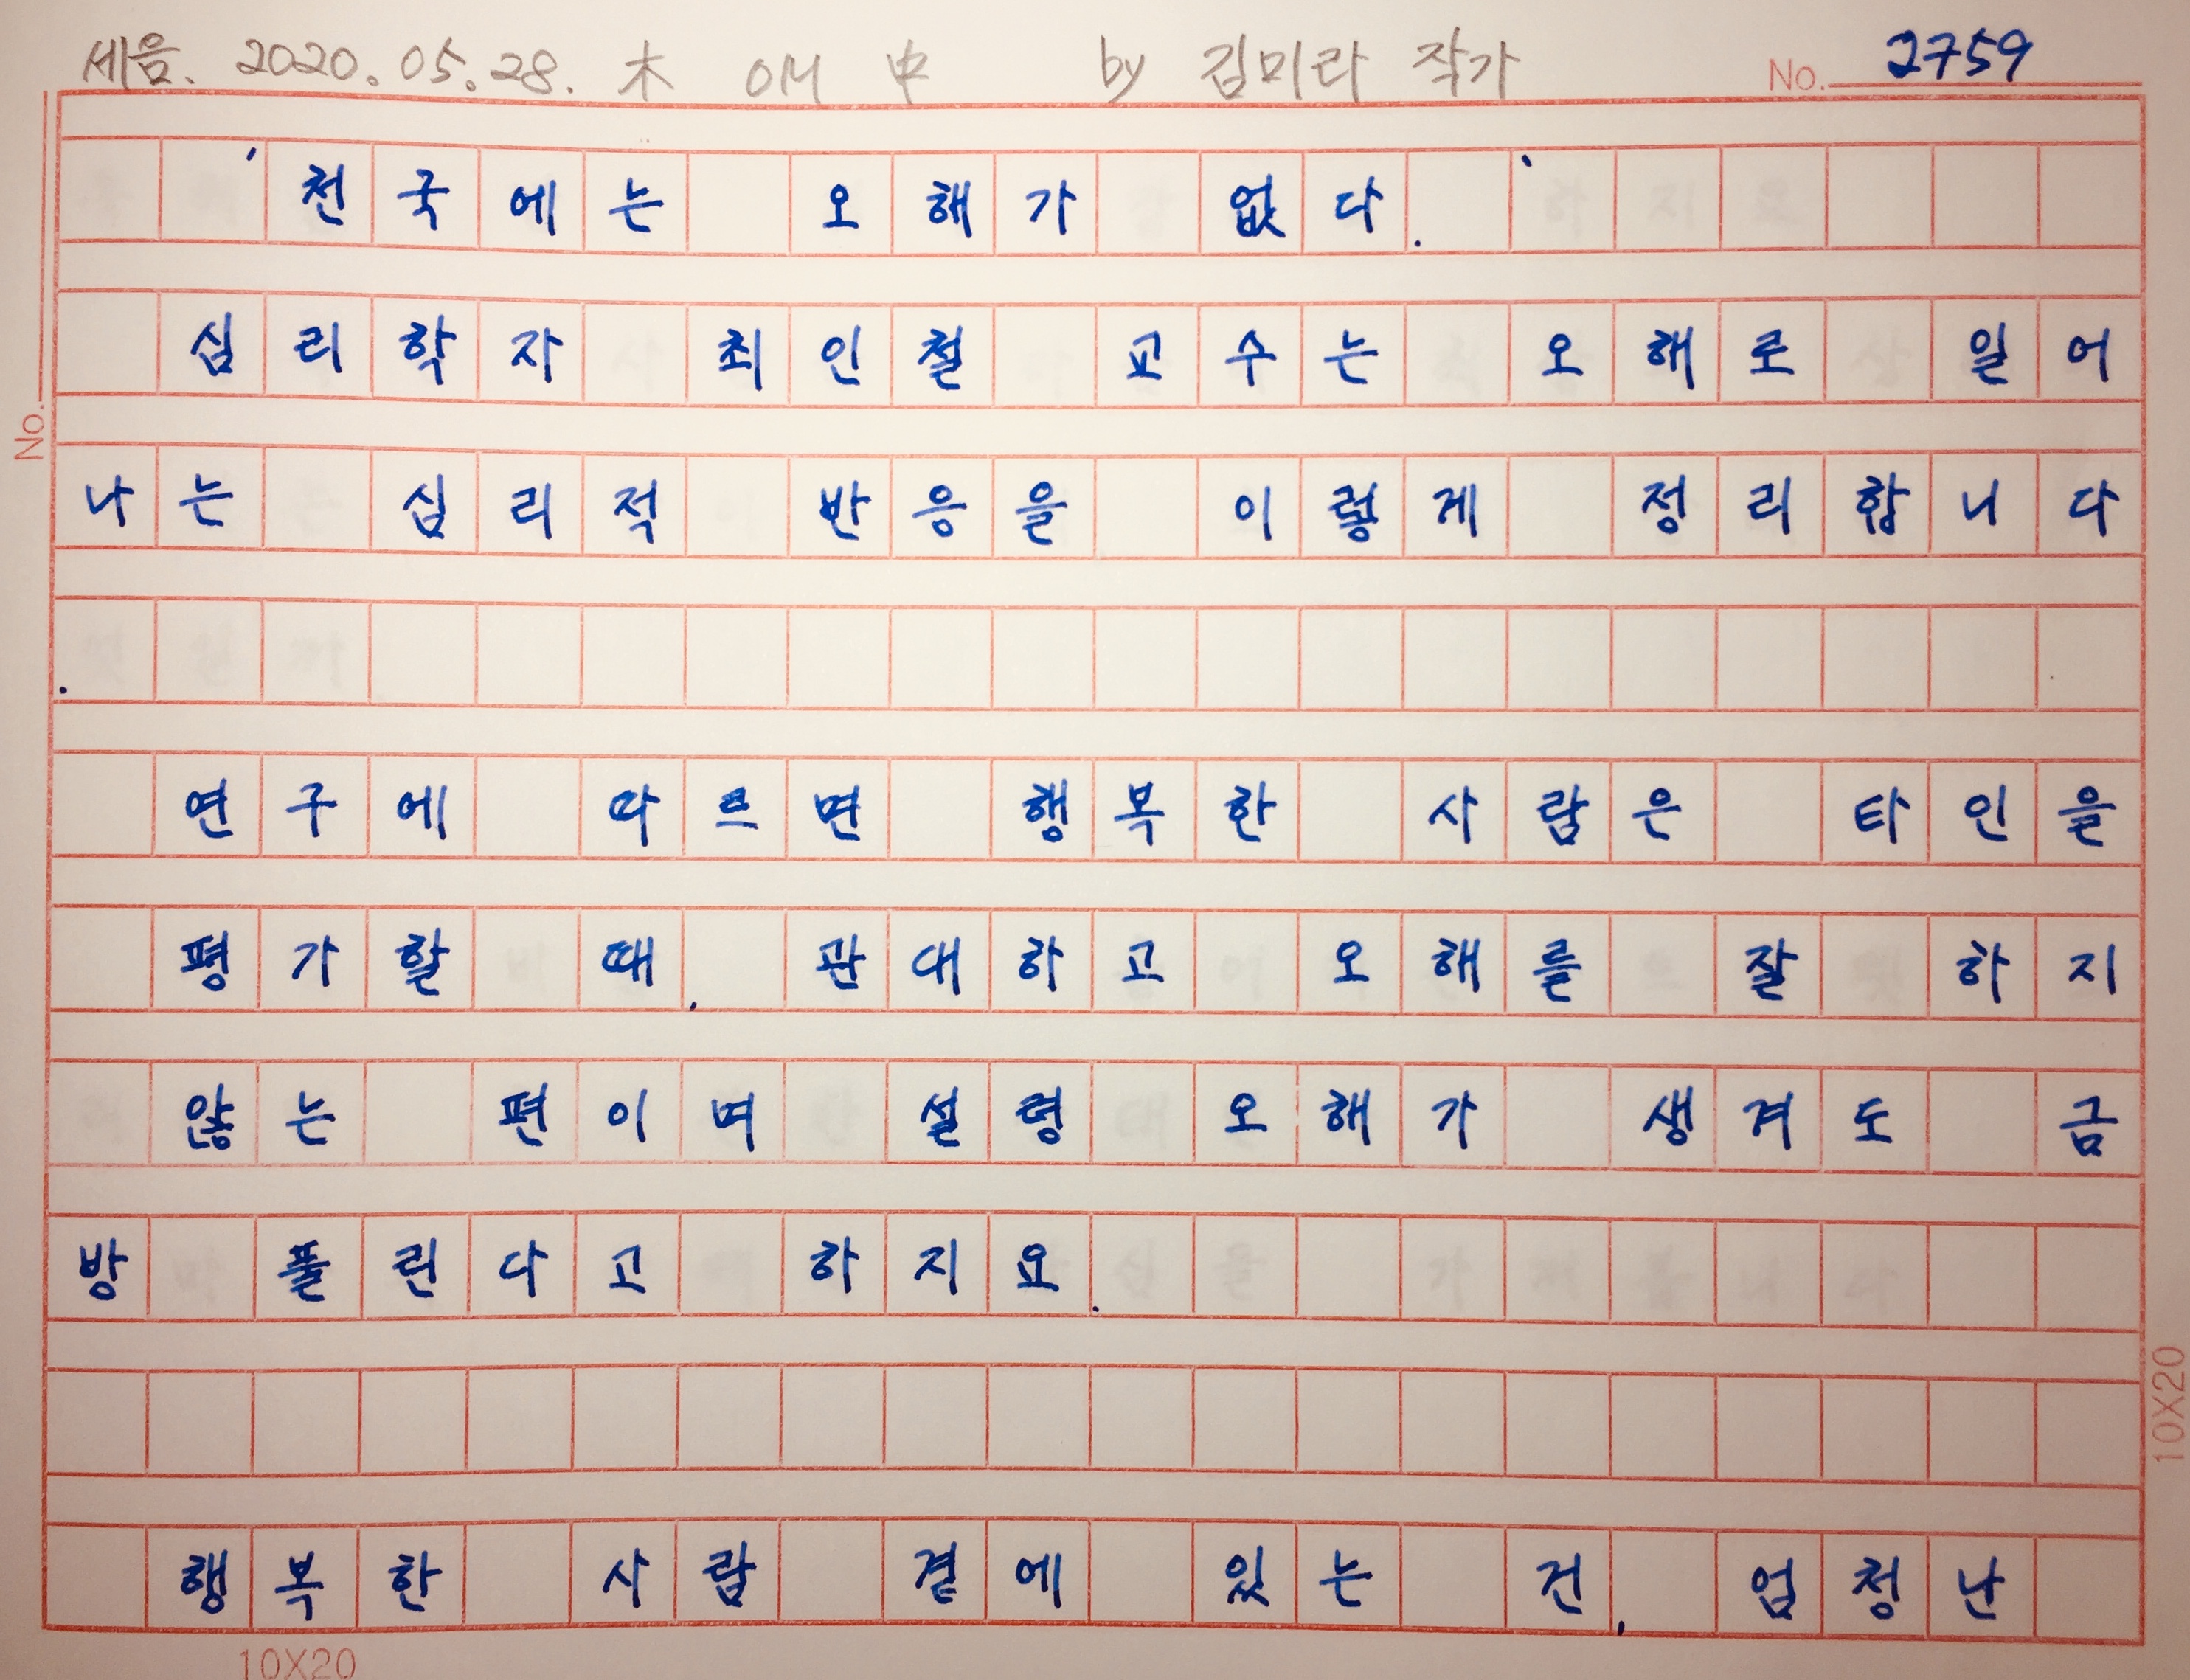 세음. 2020.05.28. 木 OM 中 by 김미라 작가
No. 2759
'천국에는 오해가 없다.'
심리학자 최인철 교수는 오해로 일어
No.
나는 심리적 반응을 이렇게 정리합니다
.
연구에 따르면 행복한 사람은 타인을
평가할 때, 관대하고 오해를 잘 하지
않는 편이며 설령 오해가 생겨도 금
방 풀린다고 하지요.
10X20
행복한 사람 곁에 있는 건, 엄청난
10X20